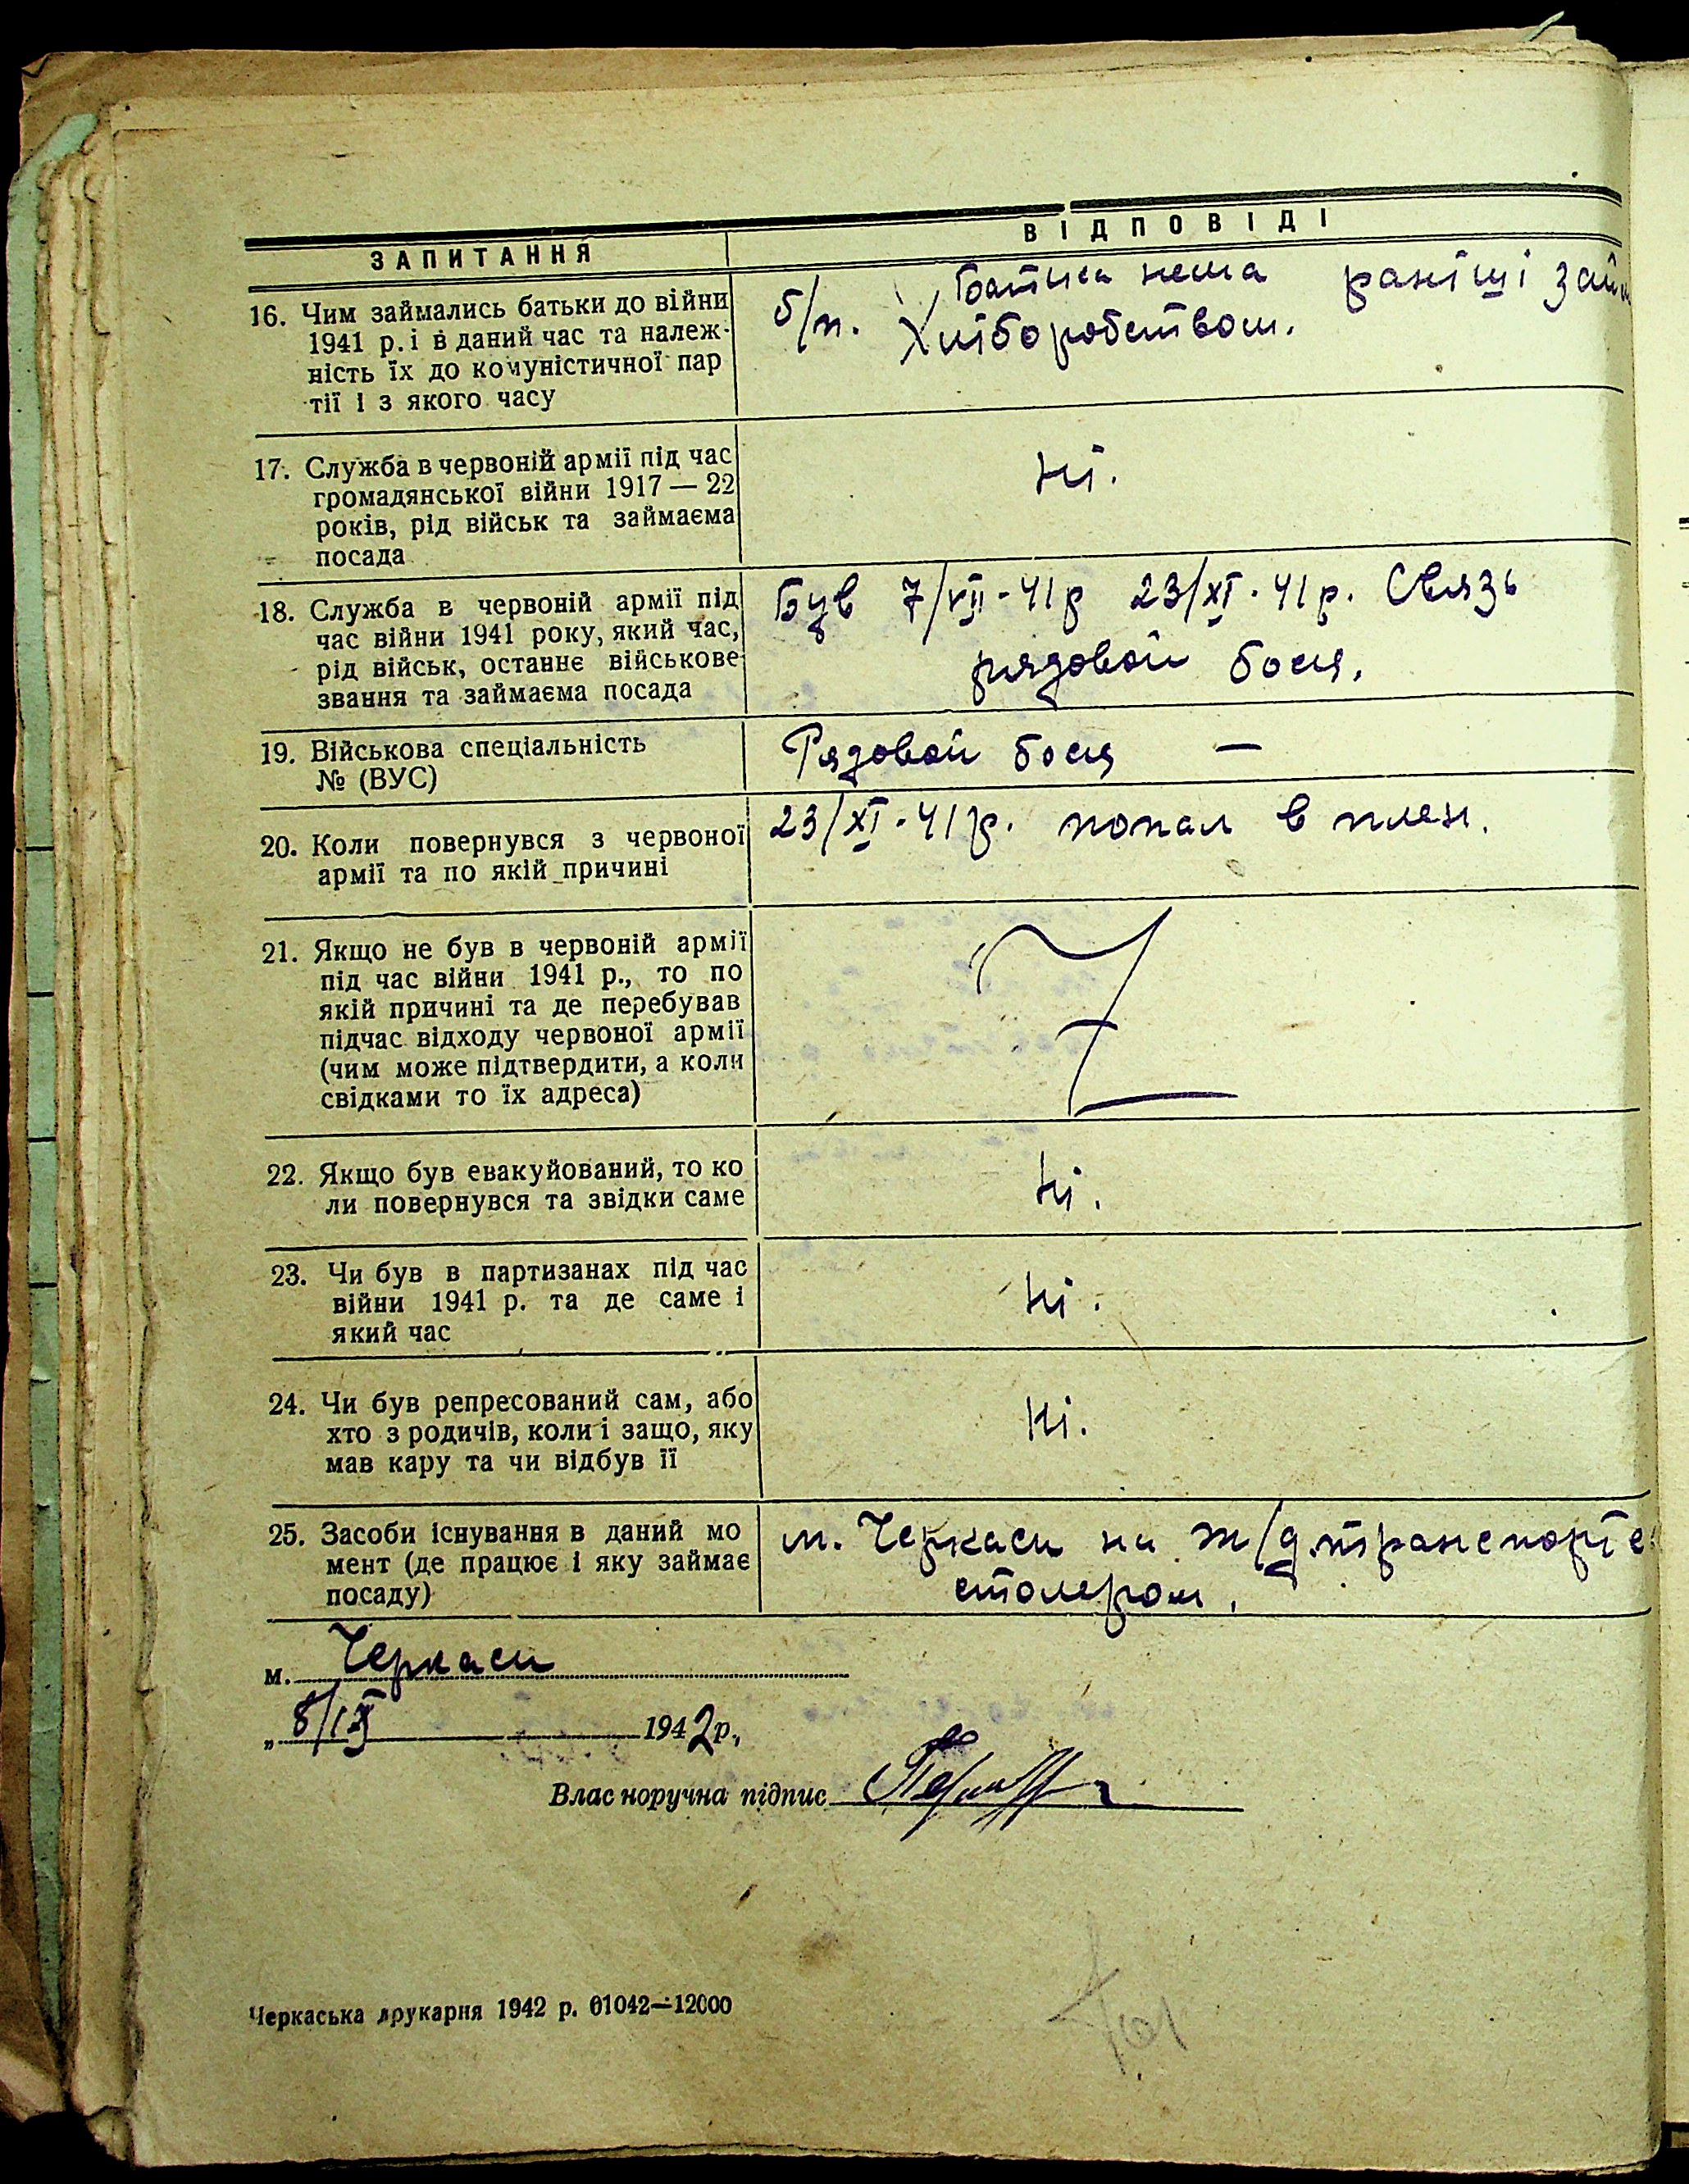 ЗАПИТАННЯ
ВІДПОВІДІ
16. Чим займались батьки до війни
1941 р. і в даний час та належ-
ність їх до комуністичної пар
тії і з якого часу
б/п. батька нема раніші
Хліборобством.
17. Служба в червоній армії під час
громадянської війни 1917 — 22
років, рід військ та займаєма
посада
Ні.
18. Служба в червоній армії під
час війни 1941 року, який час,
рід військ, останнє військове
звання та займаєма посада
Був 7/VII-41р 23/XI-41р. Связь
рядовой боєц.
19. Військова спеціальність
№ (ВУС)
Рядовой боєц —
20. Коли повернувся з червоної
армії та по якій причині
23/XI-41р. попал в плен.
21. Якщо не був в червоній армії
під час війни 1941 р., то по
якій причині та де перебував
підчас відходу червоної армії
(чим може підтвердити, а коли
свідками то їх адреса)
22. Якщо був евакуйований, то ко
ли повернувся та звідки саме
Ні.
23. Чи був в партизанах під час
війни 1941 р. та де саме і
який час
Ні.
24. Чи був репресований сам, або
хто з родичів, коли і защо, яку
мав кару та чи відбув її
Ні.
25. Засоби існування в даний мо
мент (де працює і яку займає
посаду)
м. Черкаси на ж/д.транспорте
столером.
м. Черкаси
„ 8/IX 1942р.,
Власноручна підпис
Черкаська друкарня 1942 р. 01042—12000